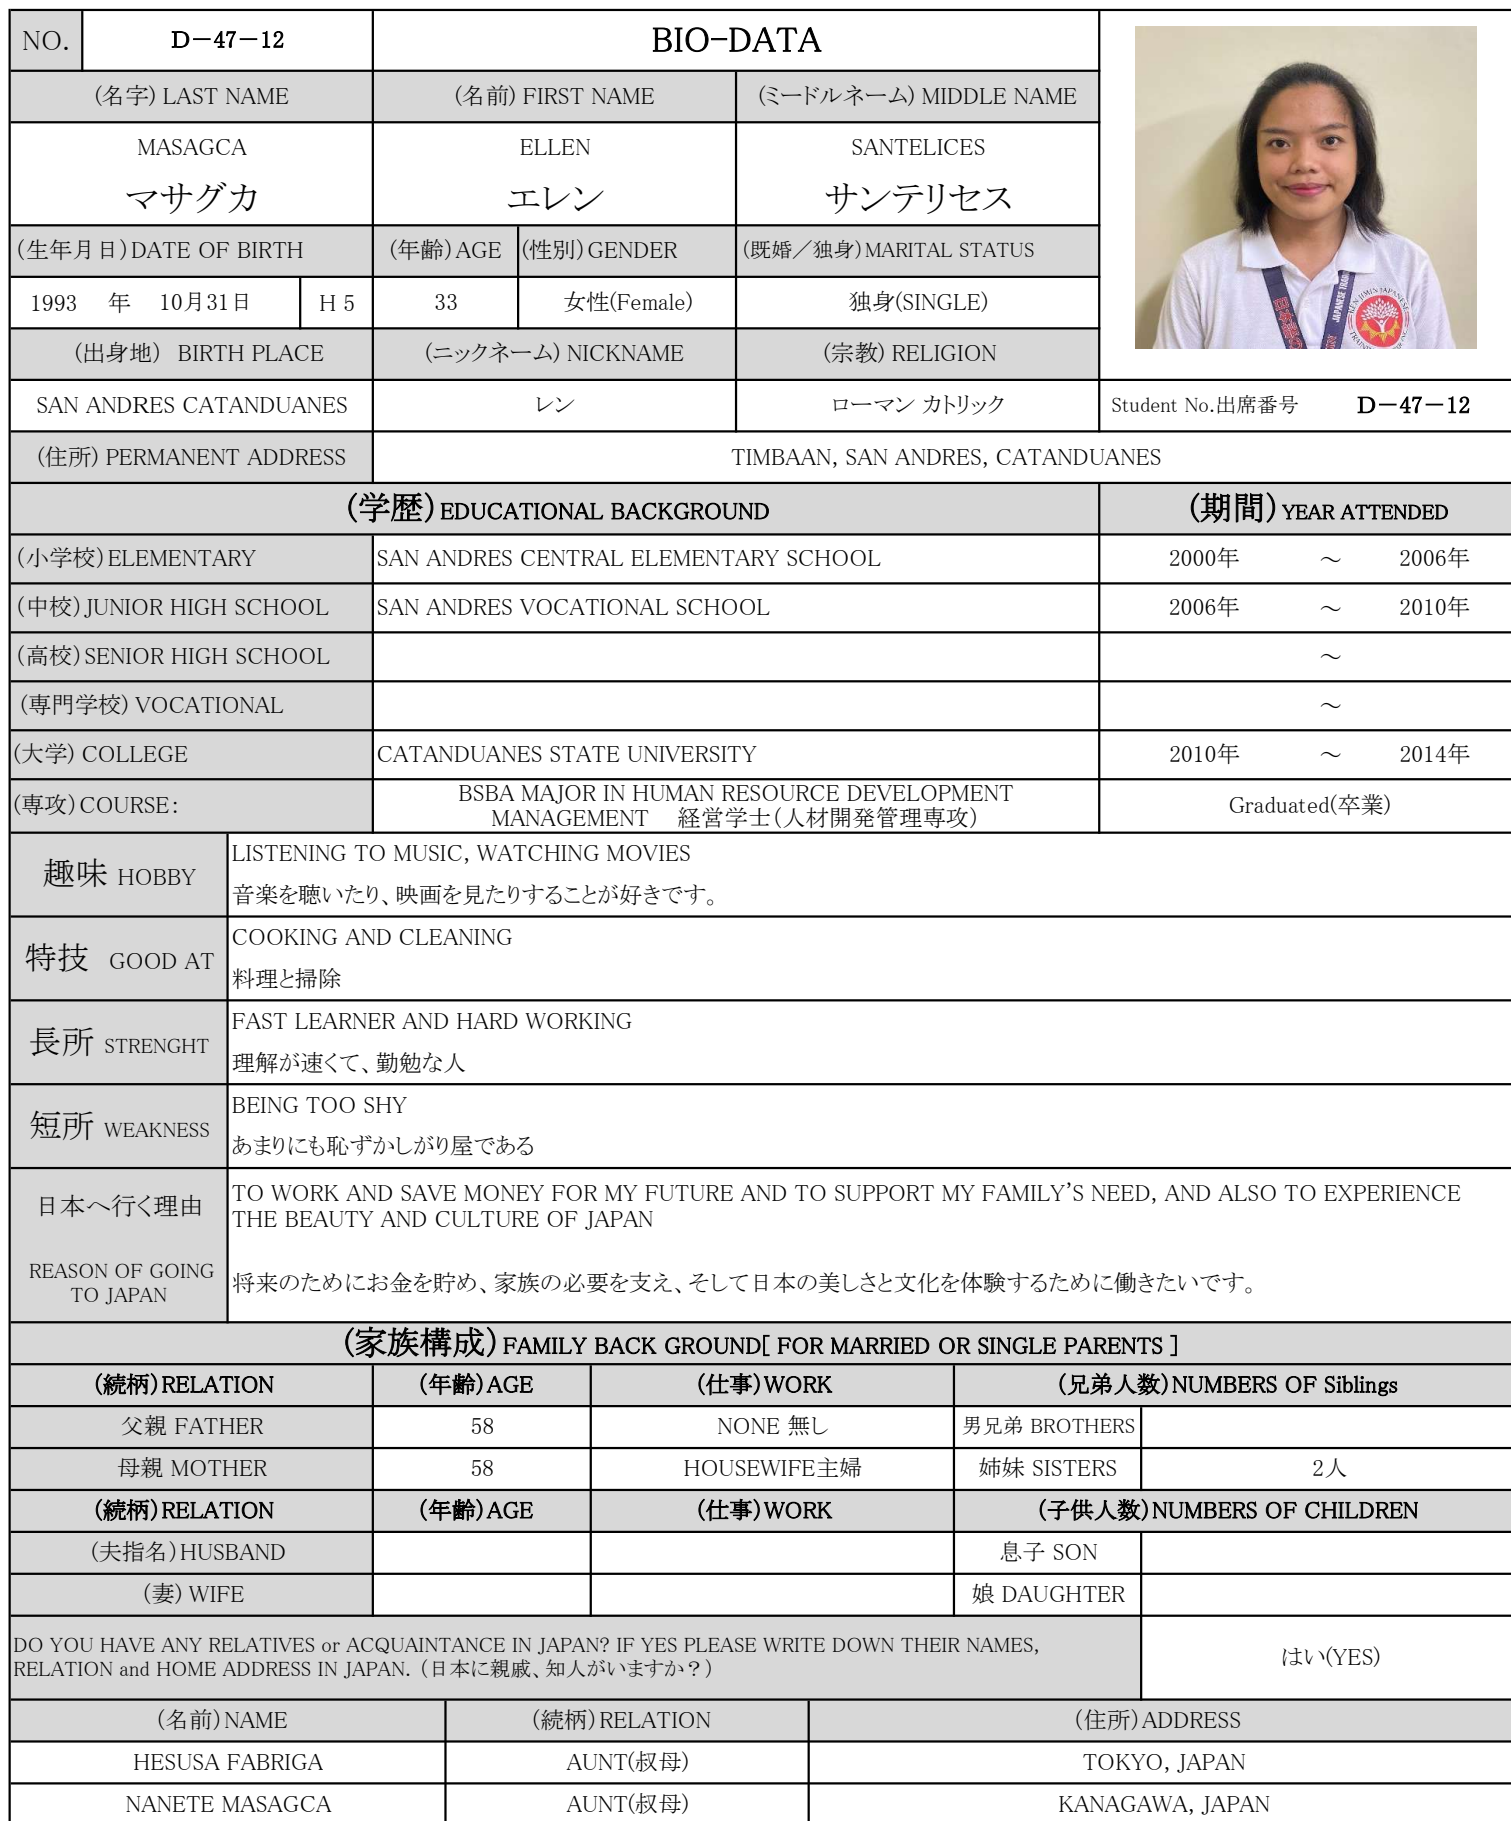 NO. D－47－12 BIO-DATA
(名字) LAST NAME (名前) FIRST NAME (ミードルネーム) MIDDLE NAME
MASAGCA ELLEN SANTELICES
マサグカ エレン サンテリセス
(生年月日)DATE OF BIRTH (年齢)AGE (性別)GENDER (既婚／独身)MARITAL STATUS
1993 年 10月31日 H 5 33 女性(Female) 独身(SINGLE)
(出身地) BIRTH PLACE (ニックネーム) NICKNAME (宗教) RELIGION
SAN ANDRES CATANDUANES レン ローマン カトリック Student No.出席番号 D－47－12
(住所) PERMANENT ADDRESS TIMBAAN, SAN ANDRES, CATANDUANES
(学歴) EDUCATIONAL BACKGROUND (期間) YEAR ATTENDED
(小学校)ELEMENTARY SAN ANDRES CENTRAL ELEMENTARY SCHOOL 2000年 ～ 2006年
(中校)JUNIOR HIGH SCHOOL SAN ANDRES VOCATIONAL SCHOOL 2006年 ～ 2010年
(高校)SENIOR HIGH SCHOOL ～
(専門学校) VOCATIONAL ～
(大学) COLLEGE CATANDUANES STATE UNIVERSITY 2010年 ～ 2014年
(専攻)COURSE: BSBA MAJOR IN HUMAN RESOURCE DEVELOPMENT
MANAGEMENT 経営学士(人材開発管理専攻) Graduated(卒業)
趣味 HOBBY LISTENING TO MUSIC, WATCHING MOVIES
音楽を聴いたり、映画を見たりすることが好きです。
特技 GOOD AT COOKING AND CLEANING
料理と掃除
長所 STRENGHT FAST LEARNER AND HARD WORKING
理解が速くて、勤勉な人
短所 WEAKNESS BEING TOO SHY
あまりにも恥ずかしがり屋である
日本へ行く理由 TO WORK AND SAVE MONEY FOR MY FUTURE AND TO SUPPORT MY FAMILY'S NEED, AND ALSO TO EXPERIENCE
THE BEAUTY AND CULTURE OF JAPAN
REASON OF GOING
TO JAPAN 将来のためにお金を貯め、家族の必要を支え、そして日本の美しさと文化を体験するために働きたいです。
(家族構成) FAMILY BACK GROUND[ FOR MARRIED OR SINGLE PARENTS ]
(続柄)RELATION (年齢)AGE (仕事)WORK (兄弟人数)NUMBERS OF Siblings
父親 FATHER 58 NONE 無し 男兄弟 BROTHERS
母親 MOTHER 58 HOUSEWIFE主婦 姉妹 SISTERS 2人
(続柄)RELATION (年齢)AGE (仕事)WORK (子供人数)NUMBERS OF CHILDREN
(夫指名)HUSBAND 息子 SON
(妻) WIFE 娘 DAUGHTER
DO YOU HAVE ANY RELATIVES or ACQUAINTANCE IN JAPAN? IF YES PLEASE WRITE DOWN THEIR NAMES,
RELATION and HOME ADDRESS IN JAPAN. (日本に親戚、知人がいますか？) はい(YES)
(名前)NAME (続柄)RELATION (住所)ADDRESS
HESUSA FABRIGA AUNT(叔母) TOKYO, JAPAN
NANETE MASAGCA AUNT(叔母) KANAGAWA, JAPAN